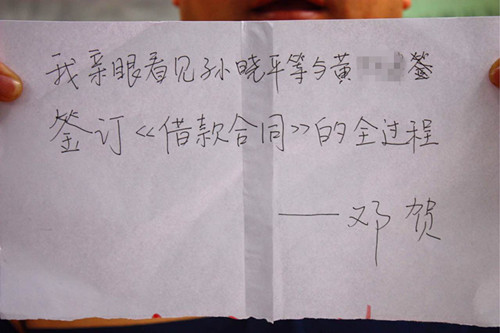 我亲眼看见孙晓平等与黄 签
签订《借款合同》的全过程
——邓贺